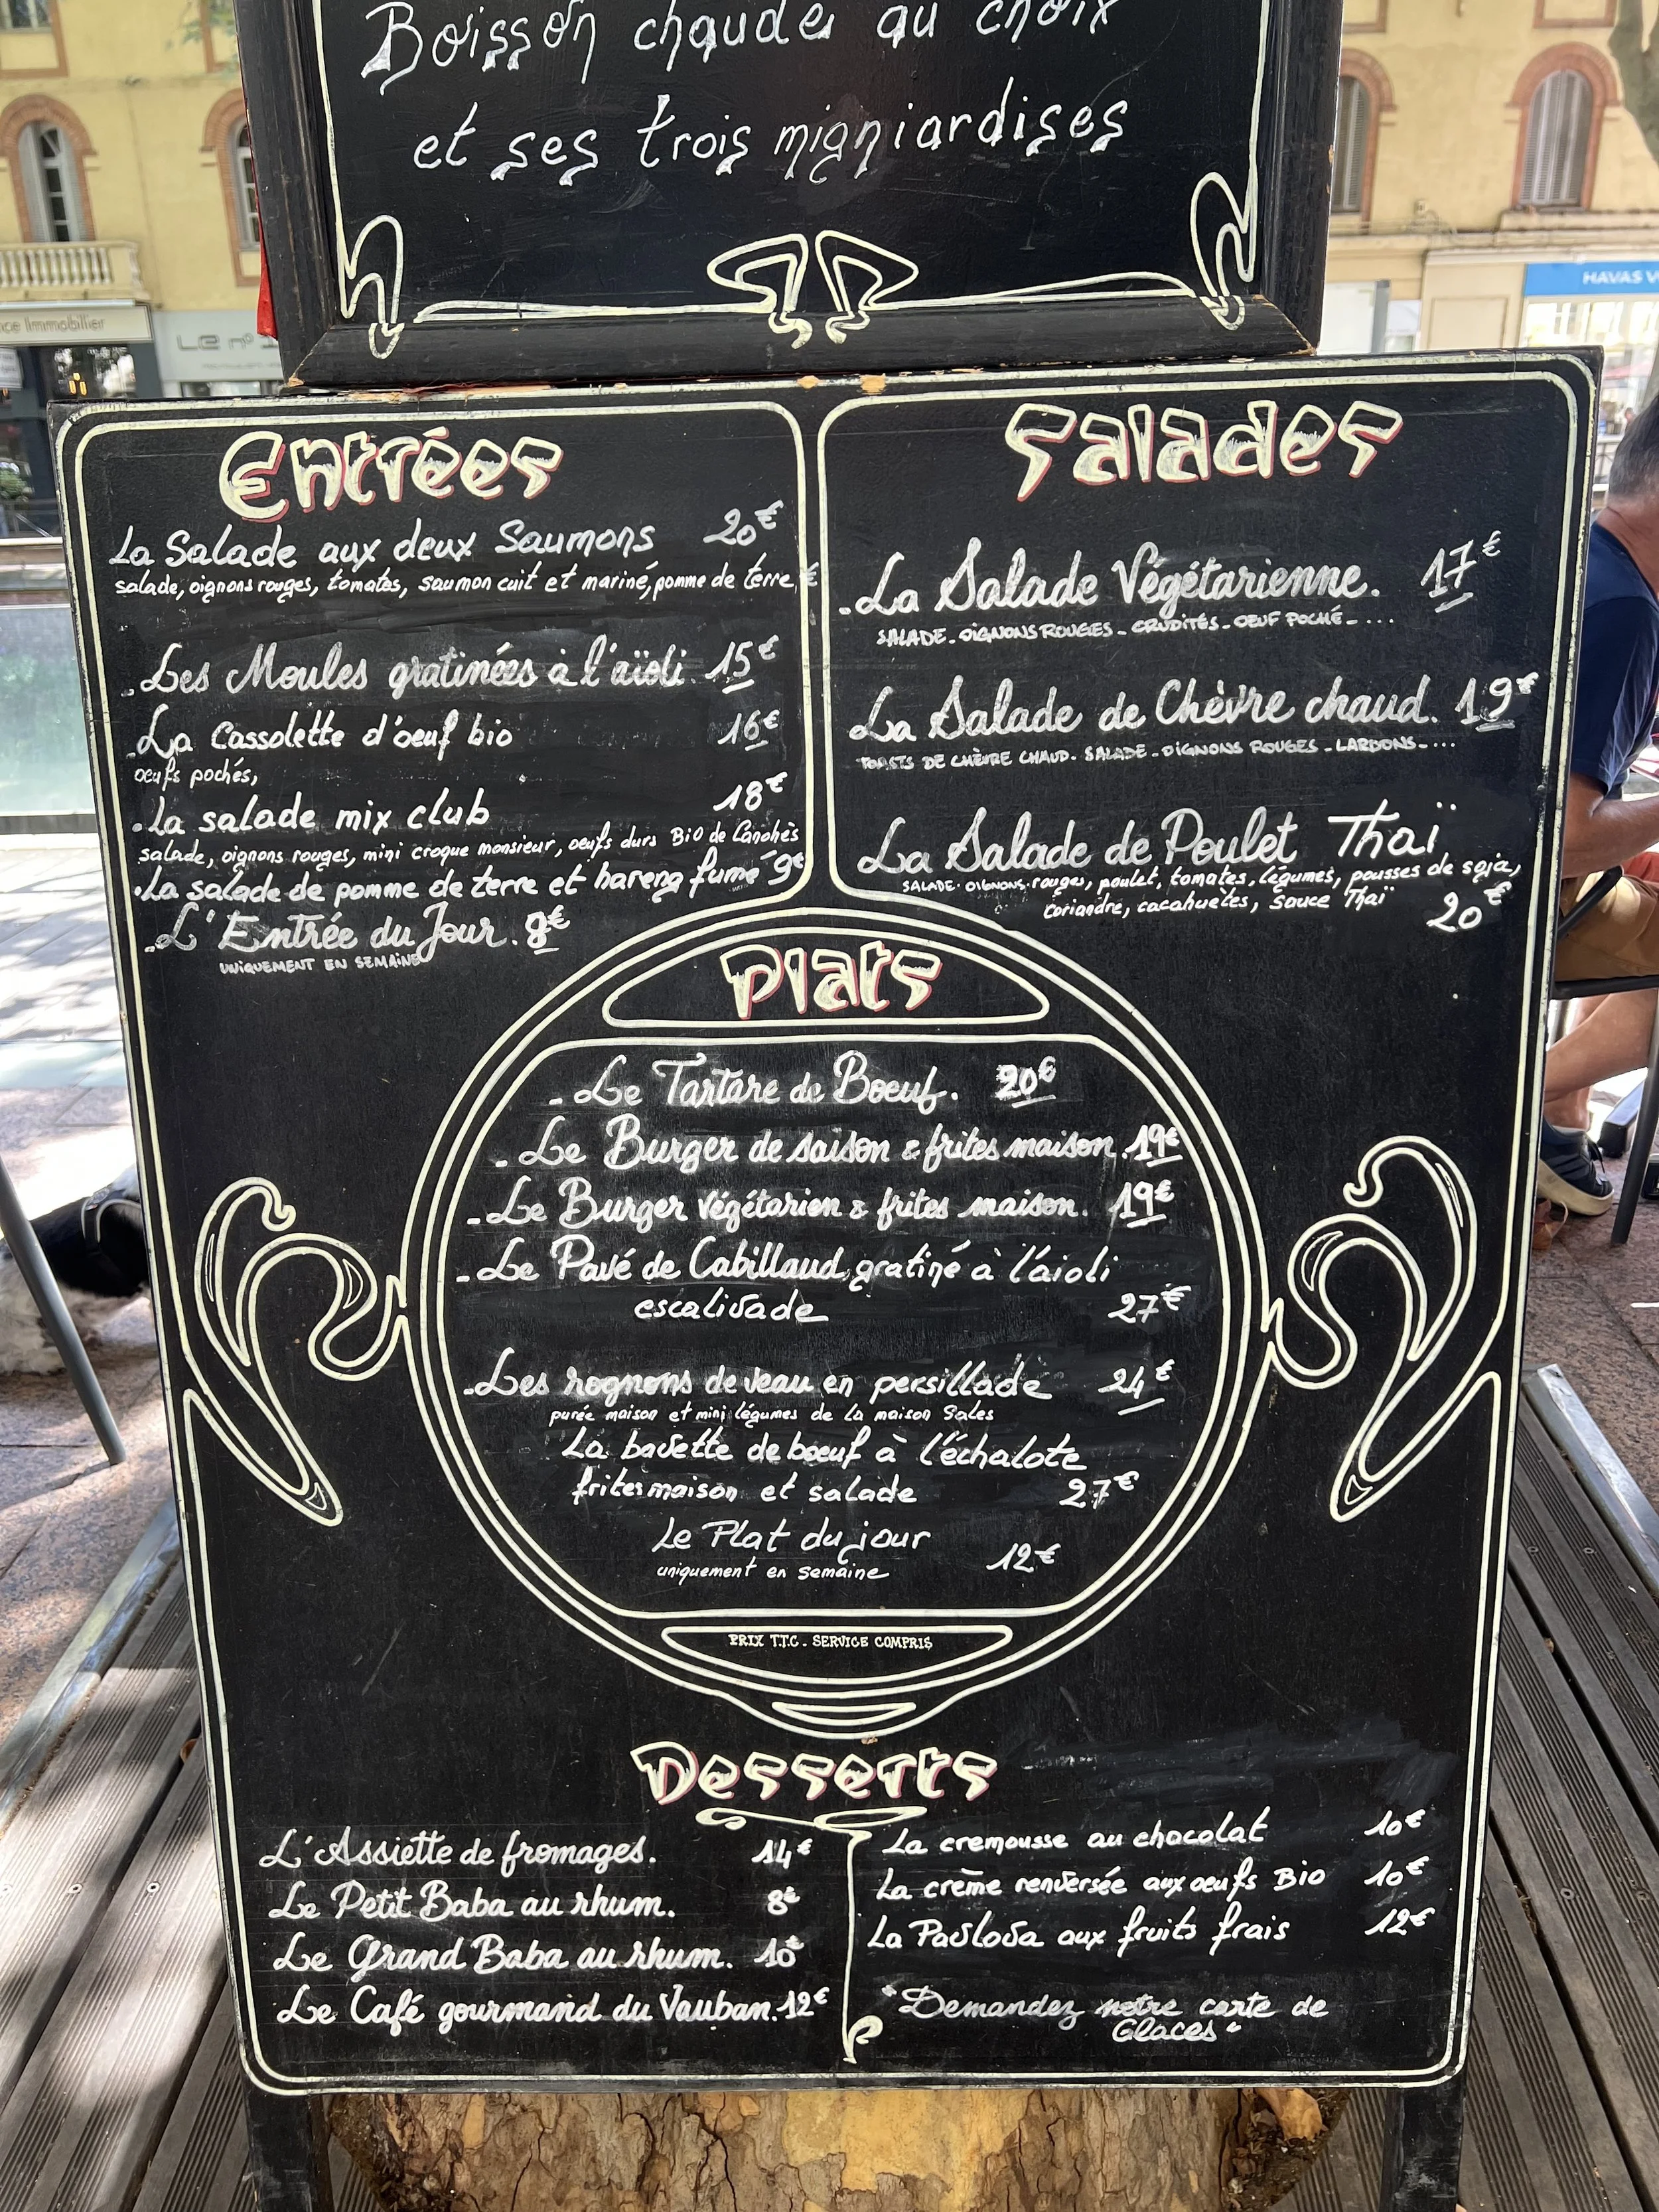 Boisson chaude au choix
et ses trois migniardises
ce Immobilier
Le n°
HAVAS V
Entrées
La Salade aux deux Saumons 20€
salade, oignons rouges, tomates, saumon cuit et mariné, pomme de terre
- Les Moules gratinées à l'aïoli 15€
- La Cassolette d'oeuf bio 16€
oeufs pochés,
- La salade mix club 18€
salade, oignons rouges, mini croque monsieur, oeufs durs Bio de Canohès
- La salade de pomme de terre et hareng fumé 9€
- L'Entrée du Jour. 8€
UNIQUEMENT EN SEMAINE
Salades
- La Salade Végétarienne. 17€
SALADE - OIGNONS ROUGES - CRUDITÉS - OEUF POCHÉ - ...
La Salade de Chèvre chaud. 19€
TOASTS DE CHÈVRE CHAUD - SALADE - OIGNONS ROUGES - LARDONS - ...
La Salade de Poulet Thaï
SALADE - OIGNONS rouges, poulet, tomates, légumes, pousses de soja,
coriandre, cacahuetes, sauce Thaï 20€
Plats
- Le Tartare de Boeuf. 20€
- Le Burger de saison & frites maison 19€
- Le Burger végétarien & frites maison. 19€
- Le Pavé de Cabillaud, gratiné à l'áioli
escalivade 27€
- Les rognons de veau en persillade 24€
purée maison et mini légumes de la maison Sales
La bavette de boeuf à l'échalote
frites maison et salade 27€
Le Plat du jour
uniquement en semaine 12€
PRIX T.T.C - SERVICE COMPRIS
Desserts
L'Assiette de fromages. 14€
Le Petit Baba au rhum. 8€
Le Grand Baba au rhum. 10€
Le Café gourmand du Vauban. 12€
La cremousse au chocolat 10€
La crème renversée aux oeufs Bio 10€
La Pavlova aux fruits frais 12€
"Demandez notre carte de
Glaces"